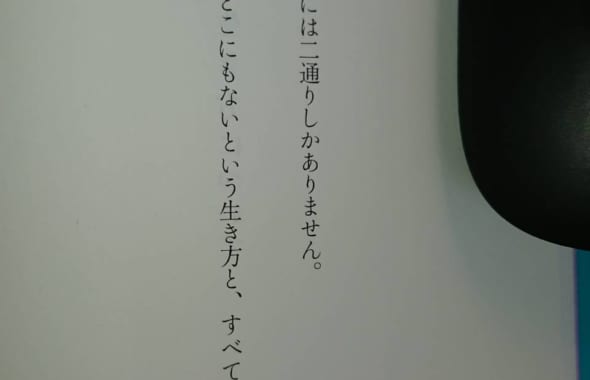 には二通りしかありません。
どこにもないという生き方と、すべて